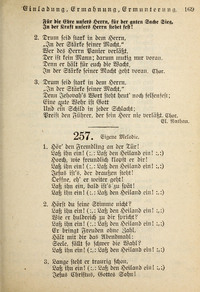 Einladung, Ermahnung, Ermunterung 169
Für die Ehre unsers Herrn, für der guten Sache Sieg,
In der Kraft unsers Herrn stehet fest!
2. Drum seid stark in dem Herrn,
„In der Stärke seiner Macht.“
Wer des Herrn Panier verläßt,
Der ist kein Mann; darum mutig nur voran.
Denn er hält für euch die Wacht.
In der Stärke seiner Macht geht voran. Chor.
3. Drum seid stark in dem Herrn,
„In der Stärke seiner Macht.“
Denn Jehovah's Wort steht heut noch felsenfest;
Eine gute Wehr ist Gott
Und ein Schild in jeder Schlacht;
Preist den Führer, der sein Heer nie verläßt. Chor.
257. Eigene Melodie.
1. Hör' den Fremdling an der Tür!
Laß ihn ein! (:,: Laß den Heiland ein! :,:)
Horch, wie freundlich klopft er hier!
Laß ihn ein! (:,: Laß den Heiland ein! :,:)
Jesus ist's, der draußen steht!
Laß ihn ein, bald ist's zu spät!
Laß ihn ein! (:,: Laß den Heiland ein! :,:)
2. Hörst du seine Stimme nicht?
Laß ihn ein! (:,: Laß den Heiland ein! :,:)
Laß ihn ein! (:,: Laß den Heiland ein! :,:)
Er bringt Freuden ohne Zahl,
Hält mit dir das Abendmahl;
Laß ihn ein! (:,: Laß den Heiland ein! :,:)
3. Lange steht er traurig schon,
Laß ihn ein! (:,: Laß den Heiland ein! :,:)
Jesus Christus, Gottes Sohn!